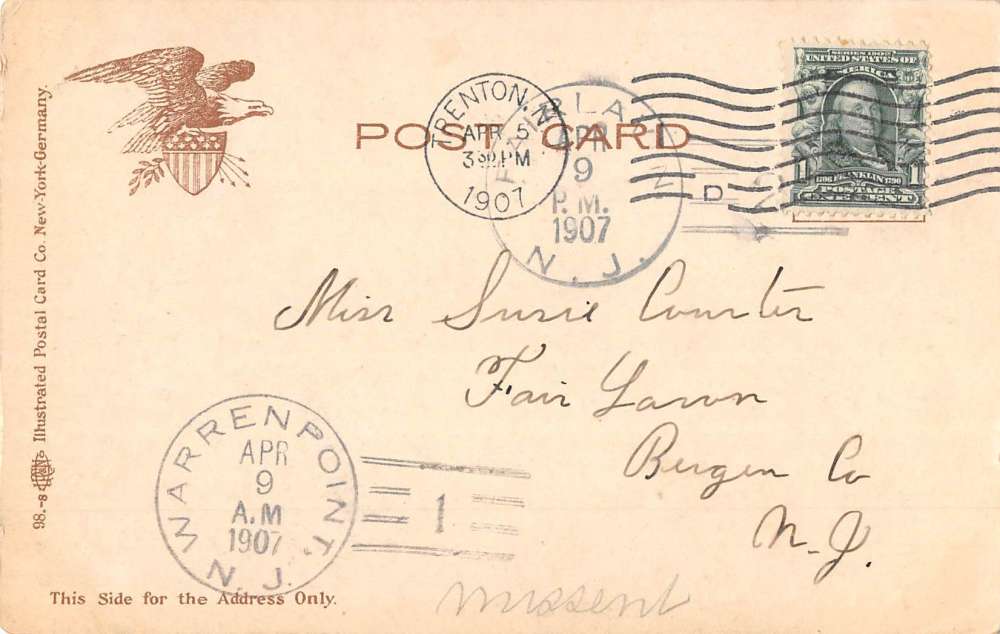 SERIES 1902
UNITED STATES OF
AMERICA
1 1706 FRANKLIN 1790 1
POSTAGE
ONE CENT
TRENTON, N.J.
APR 5
3 30 PM
1907
POST CARD
FAIR LAWN
APR
9
P.M.
1907
N.J.
D
Miss Susie Courter
Fair Lawn
Bergen Co
N.J.
WARREN POINT,
APR
9
A.M
1907
N.J.
1
missent
98.-8 Illustrated Postal Card Co. New-York-Germany.
This Side for the Address Only.